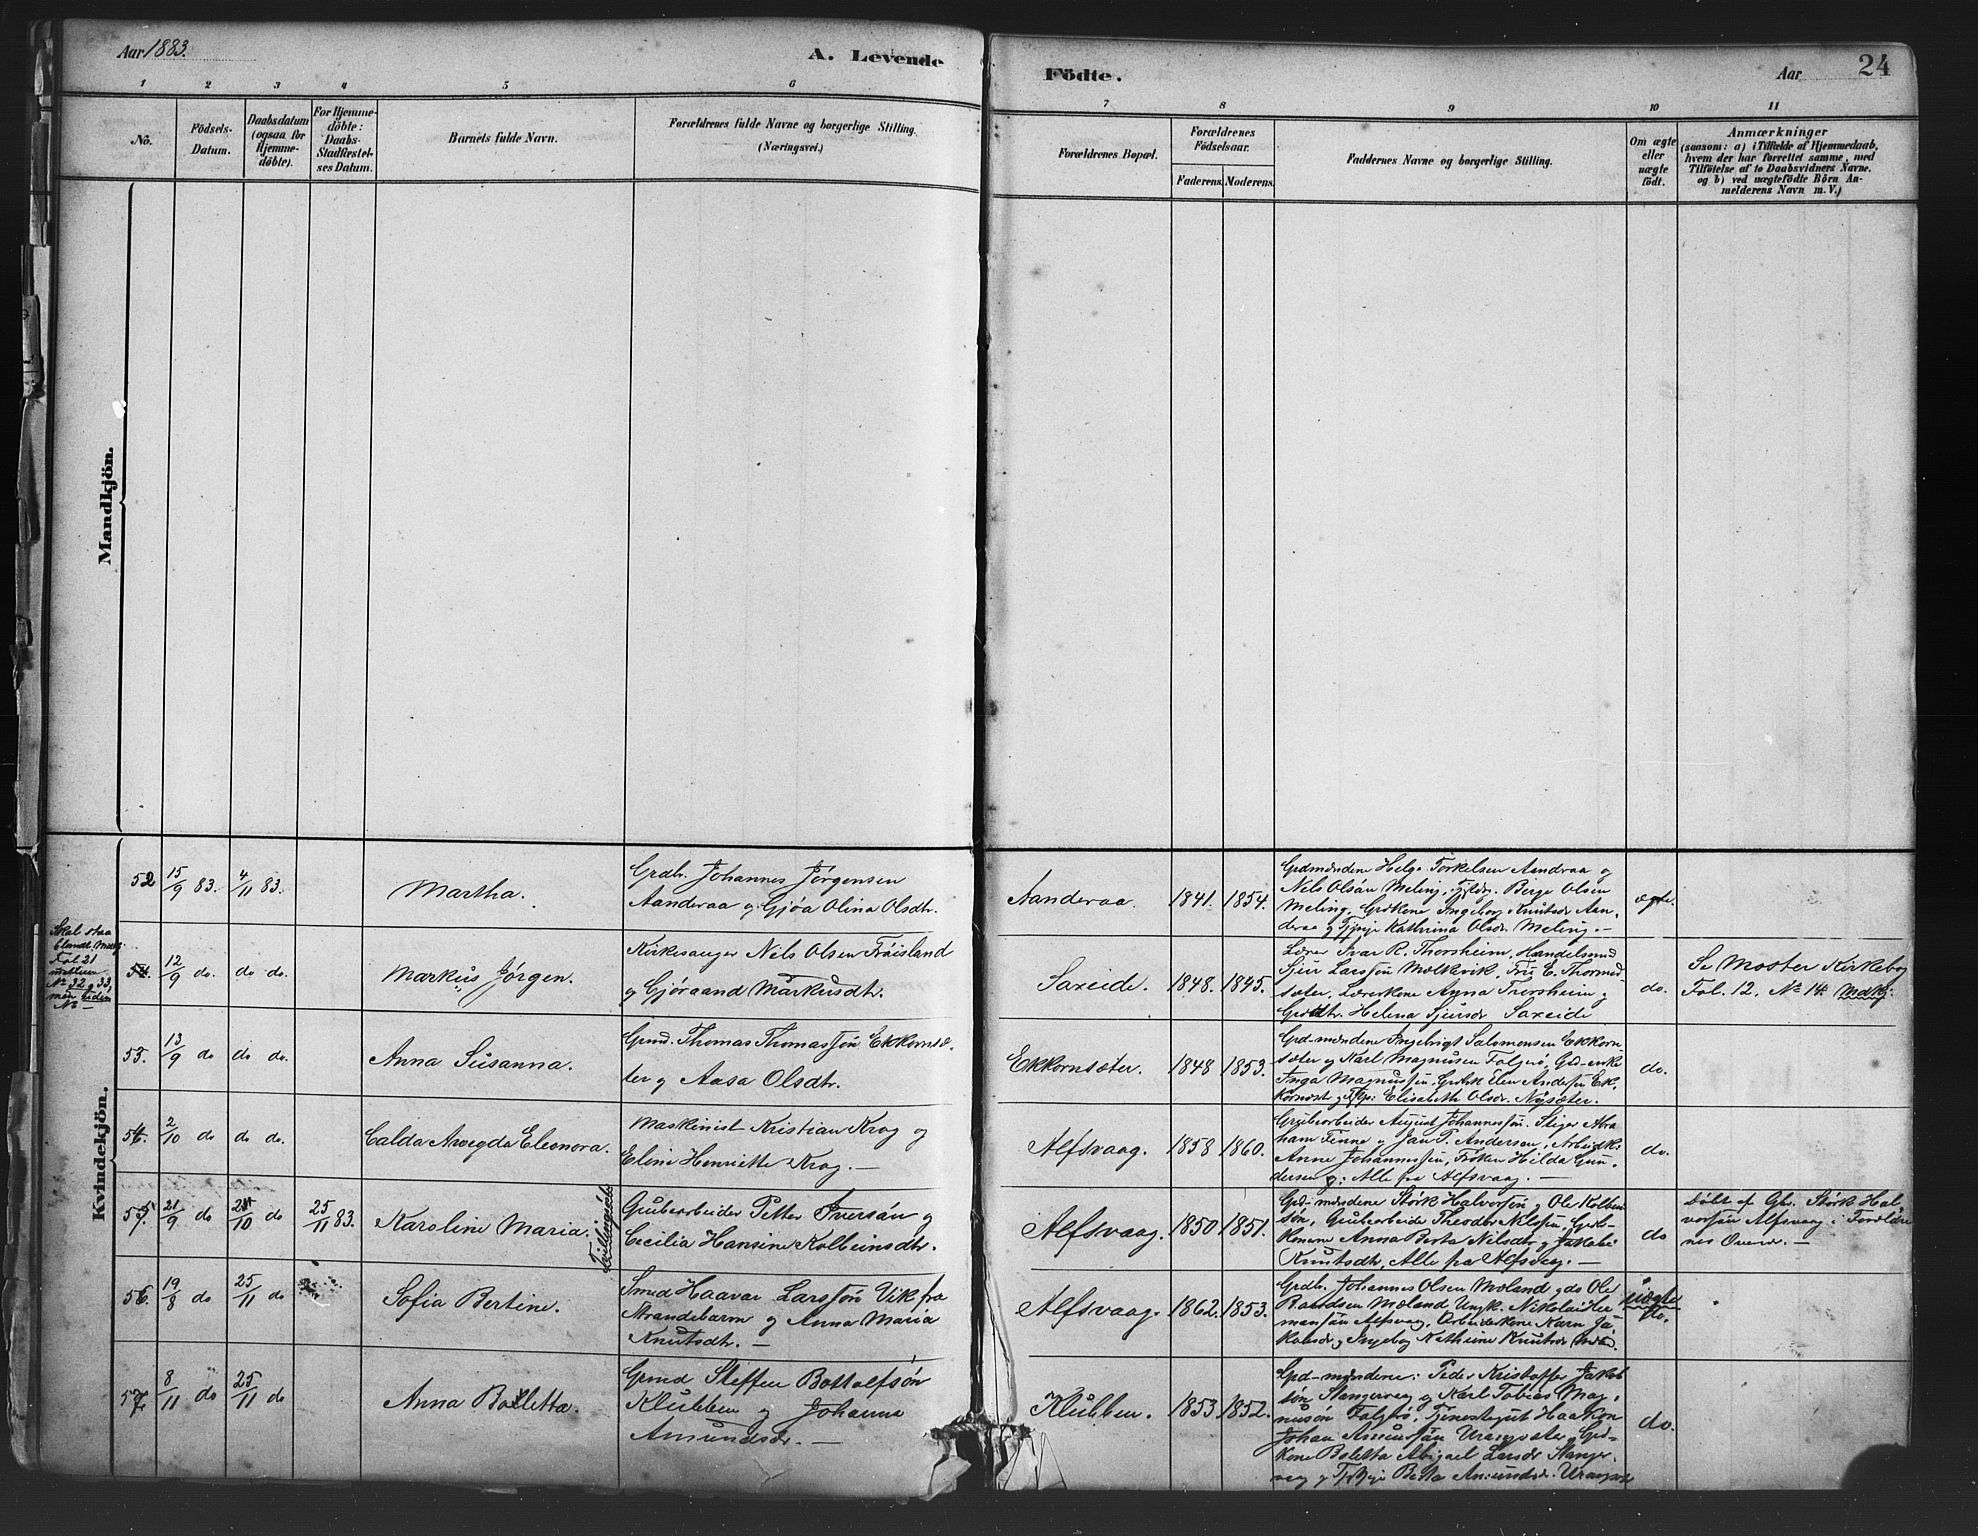 Aar 1883.
A. Levende
Födte.
Aar
24
1 2 3 4 5 6
7 8 9 10 11
No.
Födsels-
Datum.
Daabsdatum
(ogsaa for
Hjemme-
döbte).
For Hjemme-
döbte:
Daabs-
Stadfæstel-
ses Datum.
Barnets fulde Navn.
Forældrenes fulde Navne og borgerlige Stilling.
(Næringsvei.)
Forældrenes Bopæl.
Forældrenes
Födselsaar.
Faderens. Moderens.
Faddernes Navne og borgerlige Stilling.
Om ægte
eller
uægte
födt.
Anmærkninger
(saasom: a) i Tilfælde af Hjemmedaab,
hvem der har forrettet samme, med
Tilföielse af to Daabsvidners Navne.
og b) ved uægtefödte Börn An-
melderens Navn m. V.)
Mandkjön.
Kvindekjön.
52 15/9 83. 4/11 83.
Martha.
Grdb. Johannes Jørgensen
Aanderaa og Gjøa Olina Olsdtr.
Aanderaa. 1841. 1854.
Grdmændene Helge Torkelsen Aandraa og
Nils Olsön Meling, Berge Olsen
Meling, Grdkone Ingebor Knutsdr Aan-
deraa og Kathrina Olsdr. Meling.—
ægte.
Skal staa
Fol. 21
mellem
No 32 og 33,
men uden
No —
12/9 do. do do.
Markus Jørgen.
Kirkesanger Nils Olsen Frøisland
og Gjøraand Markusdtr.
Saxeide. 1848. 1845.
Lærer Ivar R. Thorsheim, Handelsmd
Sjur Larssön Mælkvik, Fru E. Thormod-
sæter, Lærerkone Anna Torsheim og
Grdtr. Helena Sjursdr Saxeide
do.
Se Moster Kirkebog
Fol. 12. No 14. Mdkj.
53. 13/9 do do do.
Anna Susanna.
Grmd. Thomas Thomassön Ekkornsæ-
ter og Aasa Olsdtr.
Ekkornsæter. 1848 1853.
Grd-mændene Ingebrigt Salomonsen Ekkorn-
sæter og Karl Magnusen Folgerø, Grd-enke
Inga Magnussen, Elen Andersen Ek-
kornsæt og Elisabeth Olsdr. Nysæter.
do.
54. 2/10 do do do.
Calda Arvegda Eleonora.
Maskinist Kristian Krog og
Eline Henriette Krog. —
Alfsvaag. 1858 1860.
Grubearbeider August Johannesen, Stiger Abra-
ham Finne og Jan P. Andersen, Arbeidk.
Anne Johannessen, Frøken Hilda Gun-
dersen; Alle fra Alfsvaag. —
do.
55. 21/9 do 21/10 do 25/11 83.
Karoline Maria.
Grubearbeider Petter Iversön og
Cecilia Hansine Kolbeinsdtr.
Alfsvaag. 1850 1851.
Grd-mændene Størk Halvorsön og Ole Kolbein-
sön, Grubearbeider Theodor Nilsen, Grd-
konene Anna Berta Nilsdtr og Jakobi-
Knutsdtr, Alle fra Alfsvag. —
do
Döbt af Gbr. Størk Hal-
vorsön Alfsvaag i Forældre-
nes Overvær. —
56. 19/8 do 25/11 do
Sofia Bertine.
Smed Haavar Larssön Vik fra
Strandebarm og Anna Maria
Knutsdtr. —
Alfsvaag. 1862. 1853.
Grdb. Johannes Olsen Mæland, do Ole
Baardsen Mæland, Ungk. Nikolai Her-
mansön Alfsvag, Arbeiderkone Karn Ja-
kobsdr og Ingebor Kathrine Knutsdr
uægte
57. 8/11 do 25/11 do
Anna Boletta.
Grmd Steffen Bottolfsön
Klubben og Johanna
Amundsdr. —
Klubben. 1853. 1852.
Grd-mændene: Peder Kristoffer Jakob-
sön Stangervag og Karl Tobias Mag-
nusön Folgerø, Tjenestegut Haakon
Johan Amundsön Urangsæter, Grd-
kone Boletta Abigael Larsdr Stanger-
vag og Berta Amundsdr. Urangsæt
do.